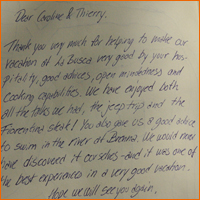 Dear Caroline & Thierry,
Thank you very much for helping to make our
vacation at La Busca very good by your hos-
pitality, good advices, open mindedness and
Cooking capabilities. We have enjoyed both
all the talks we had, the jeep trip and the
Fiorentina steak! You also gave us a good advice
to swim in the river at We would never
have discovered it ourselves - and it was one of
the best experiences in a very good vacation.
Hope we will see you again,